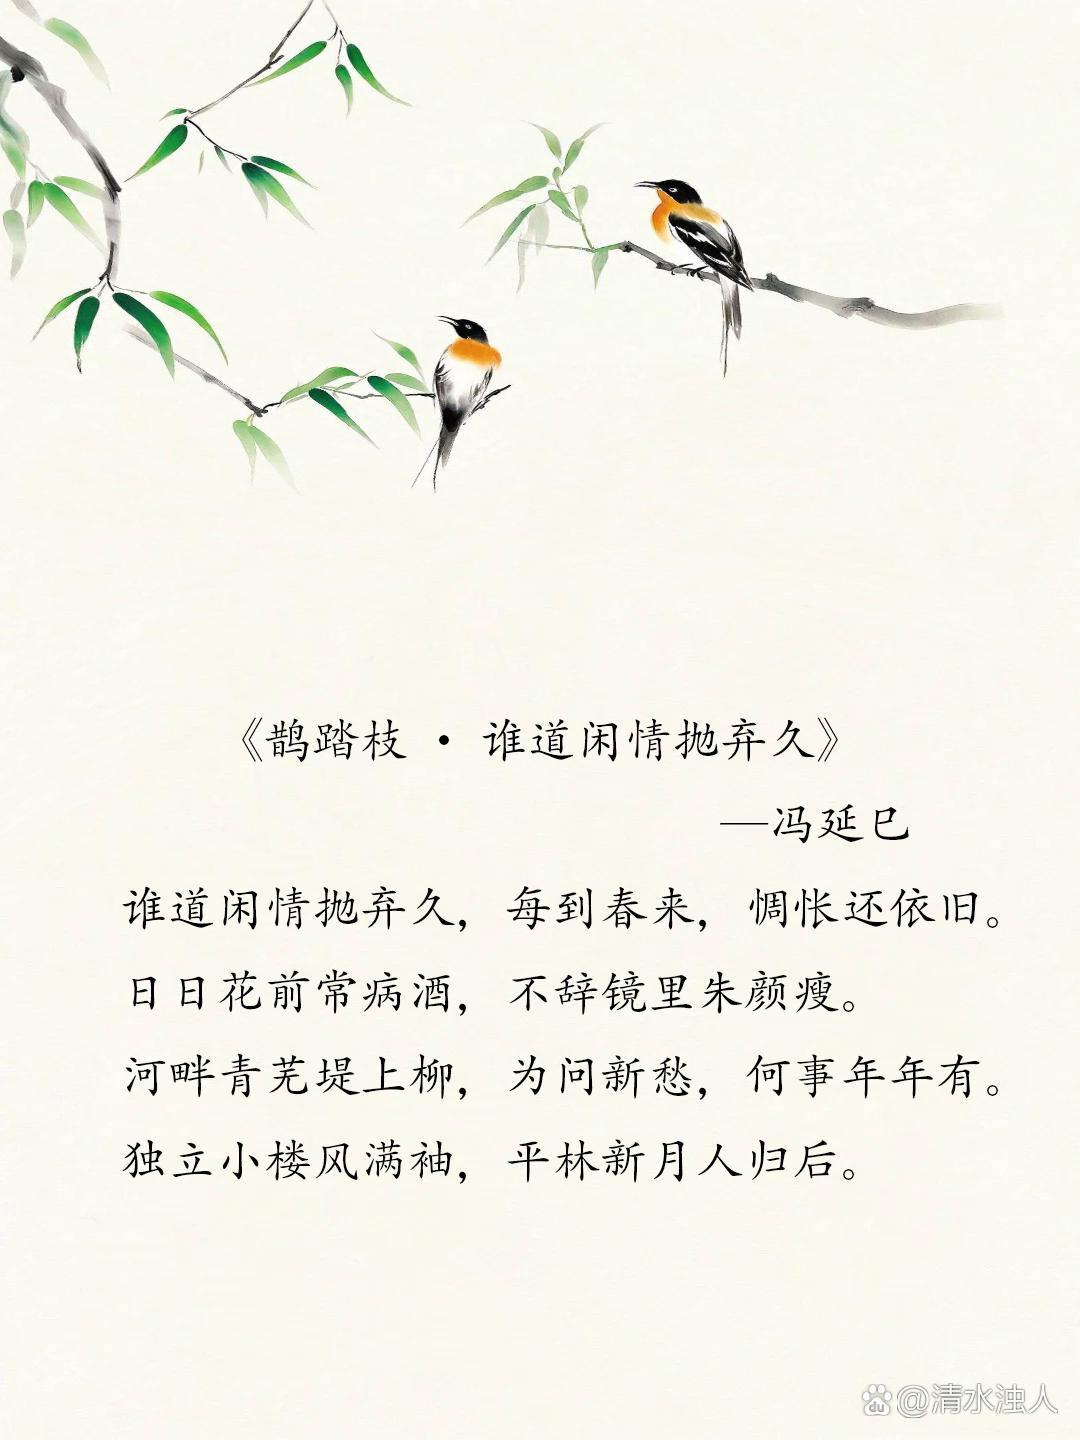 《鹊踏枝 · 谁道闲情抛弃久》
—冯延巳
谁道闲情抛弃久，每到春来，惆怅还依旧。
日日花前常病酒，不辞镜里朱颜瘦。
河畔青芜堤上柳，为问新愁，何事年年有。
独立小楼风满袖，平林新月人归后。
du @清水浊人